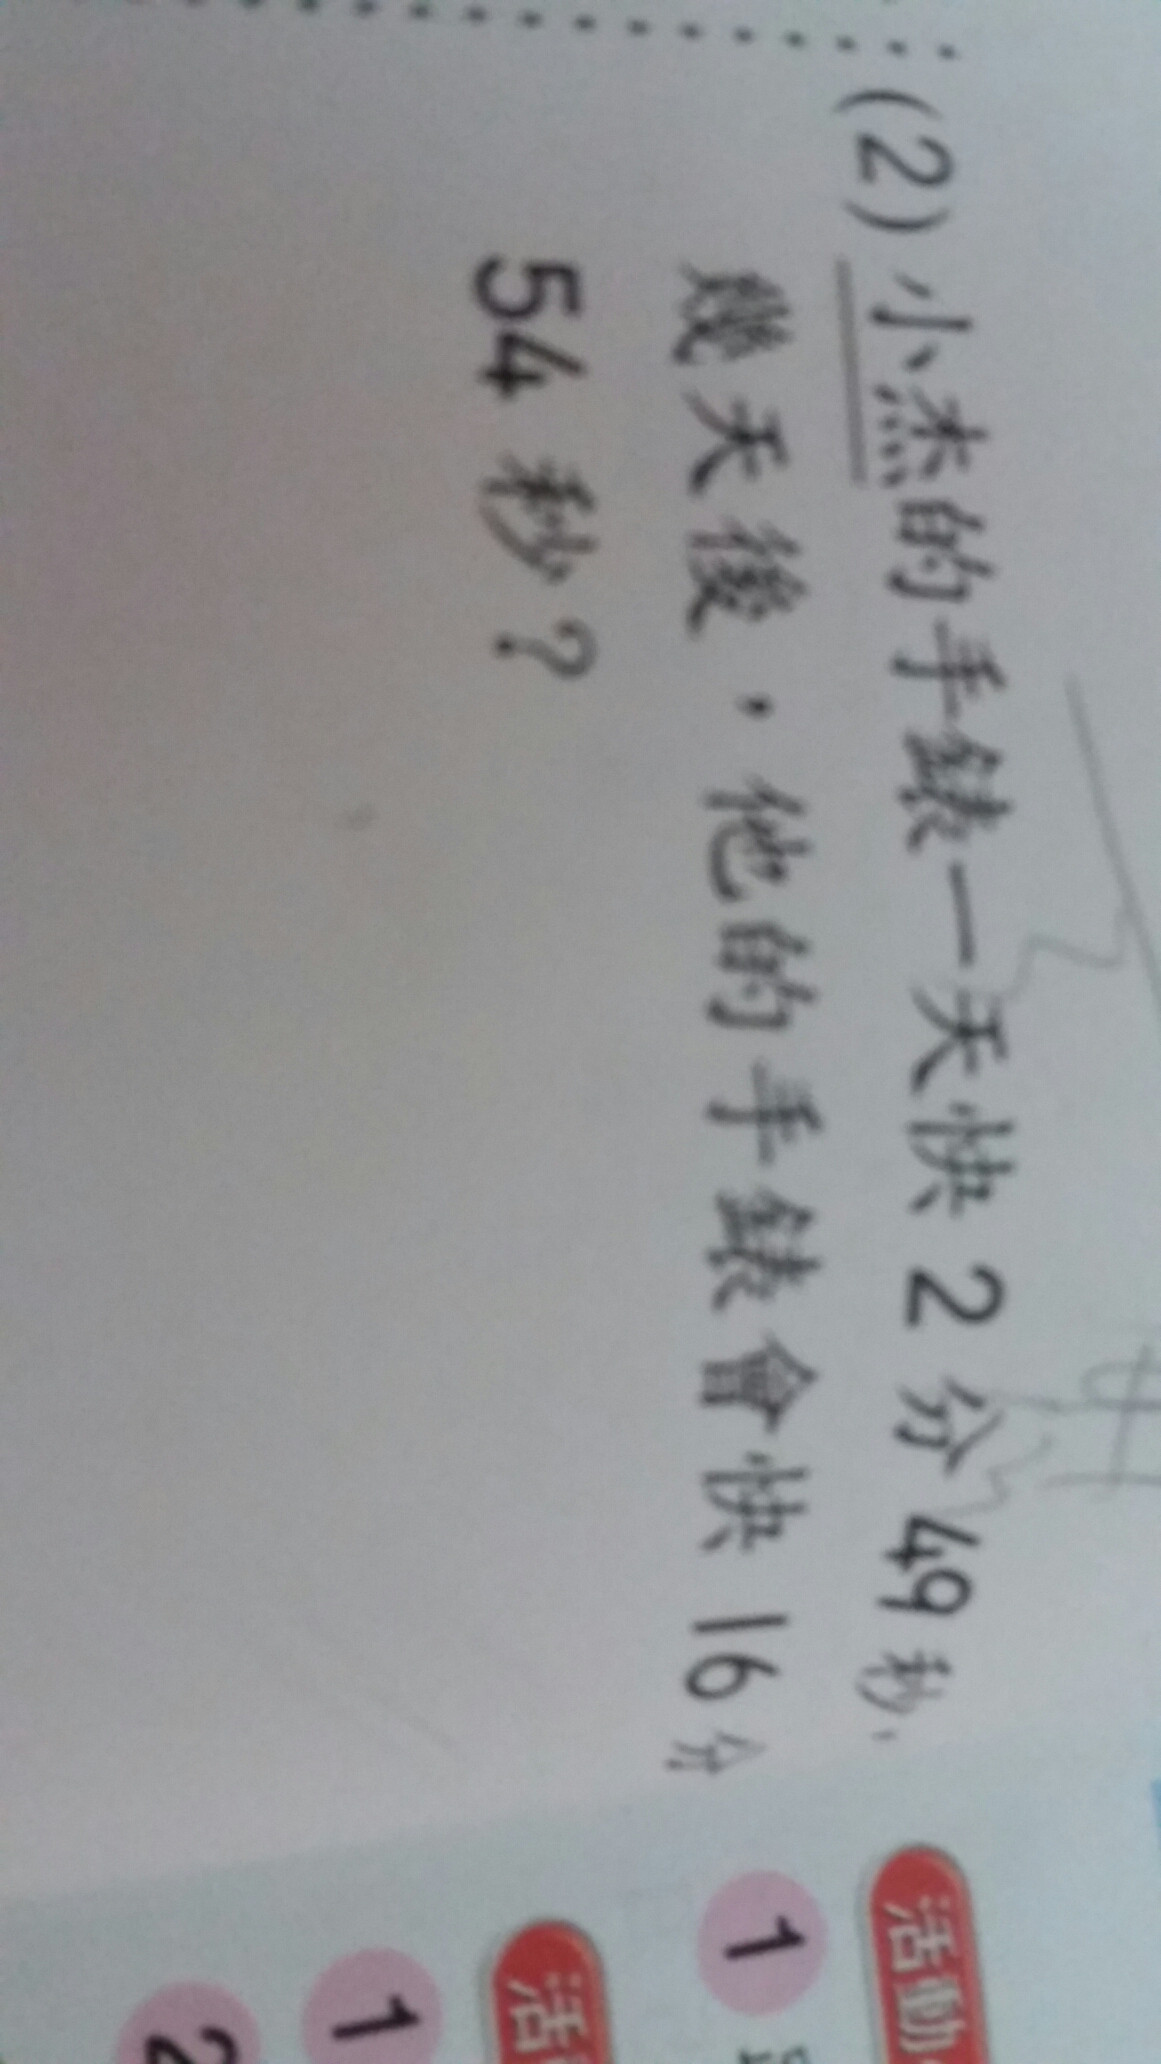 (2)小杰的手錶一天快 2 分 49 秒,
幾天後,他的手錶會快 16 分
54 秒?
活動
1
活
1
2